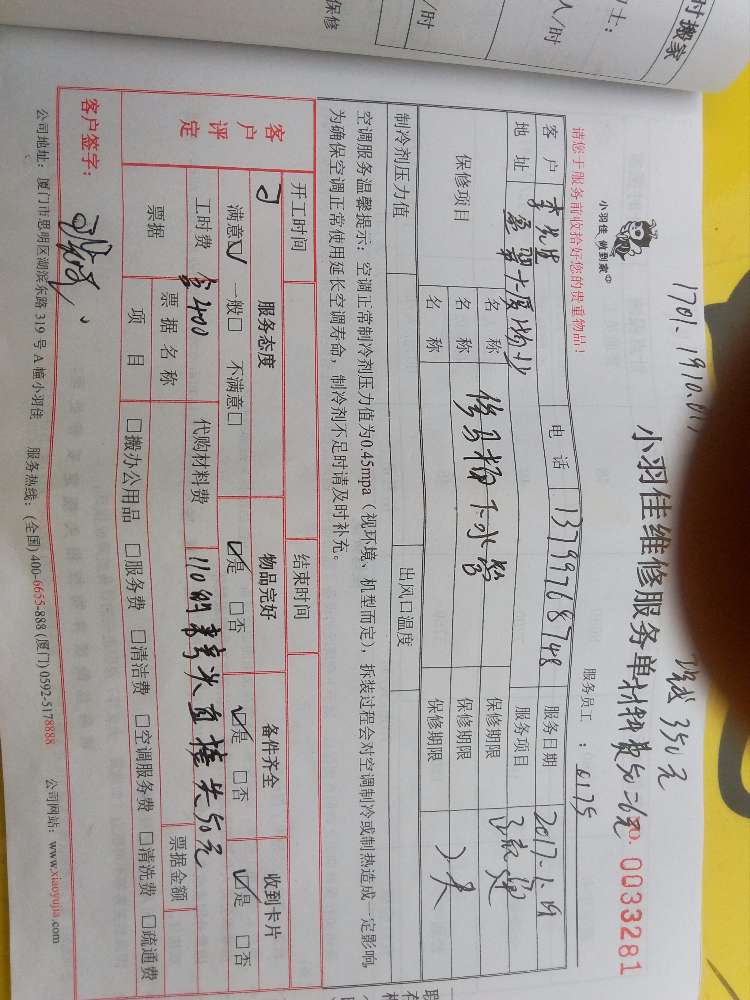 时搬家
人/时
/时
保修
1701.1910.
350元
小羽佳维修服务单
材料费50=6元
NO. 0033281
小羽佳 做到家
请您于服务前收拾好您的贵重物品!
服务员工 : 0175
客户 李先生 电话 13799768748 服务日期 2017-1.19
地址 大厦物业 服务项目
保修项目 名称 修马桶下水管 保修期限
名称 保修期限
名称 保修期限
制冷剂压力值 出风口温度
空调服务温馨提示:空调正常制冷剂压力值为0.45mpa(视环境、机型而定),拆装过程会对空调制冷或制热造成一定影响,
为确保空调正常使用延长空调寿命,制冷剂不足时请及时补充。
开工时间 结束时间
客户评定 服务态度 物品完好 备件齐全 收到卡片
满意☑ 一般□ 不满意□ ☑是 □否 ☑是 □否 ☑是 □否
工时费 400 代购材料费 110的弯头直接头50元
票据 票据名称 票据金额
项目 □搬办公用品 □服务费 □清洁费 □空调服务费 □清洗费 □疏通费
客户签字:
公司地址:厦门市思明区湖滨东路 319 号 A 幢小羽佳 服务热线:(全国) 400-6655-888 (厦门) 0592-5178888 公司网站:www.xiaoyujia.com